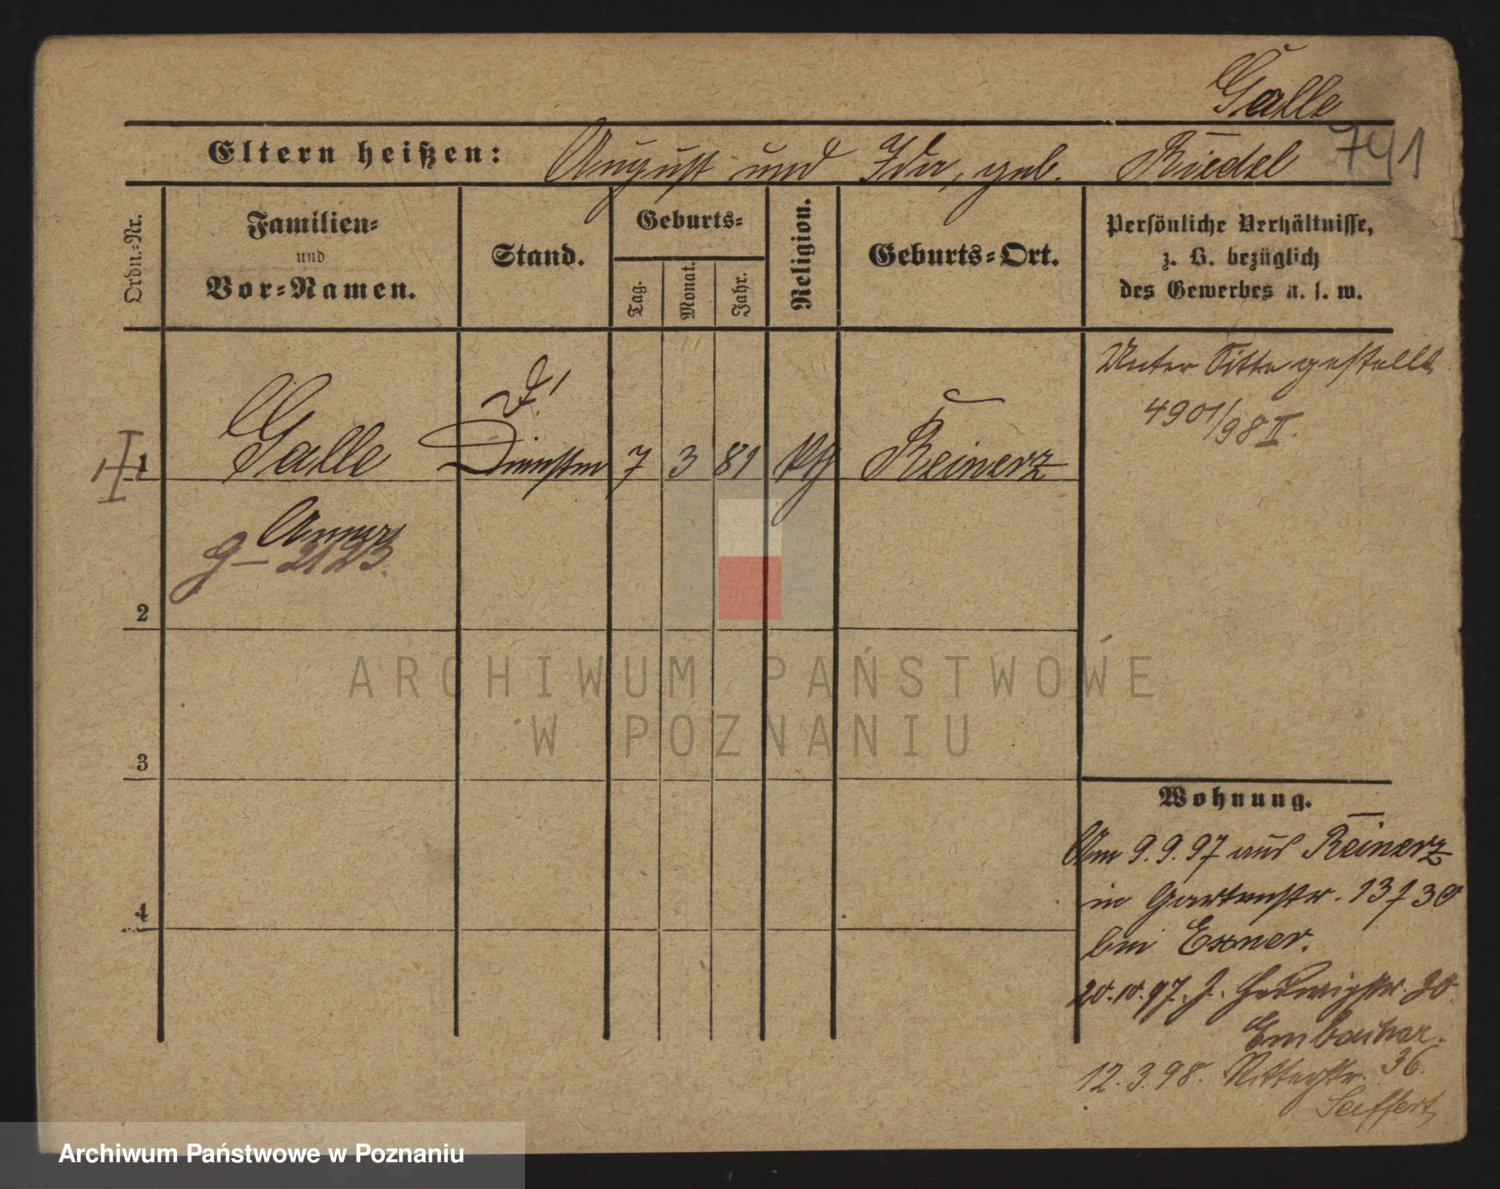 Galle
Eltern heißen: August und Ida, geb. Riedel 741
Ordn.-Nr.
Familien-
und
Vor-Namen.
Stand.
Geburts-
Tag.
Monat.
Jahr.
Religion.
Geburts-Ort.
Persönliche Verhältnisse,
z. B. bezüglich
des Gewerbes u. s. w.
1 Galle Dienstm 7 3 81 Reinerz
Anna
2123.
Unter Sitte gestellt
4901/98 II.
2
3
4
Wohnung.
Am 9.9.97 aus Reinerz
in Gartenstr. 13 f 30
bei Exner.
20.10.97. J. Hedwigstr. 20
12.3.98. Ritterstr. 36.
Seiffert
ARCHIWUM PAŃSTWOWE
W POZNANIU
Archiwum Państwowe w Poznaniu